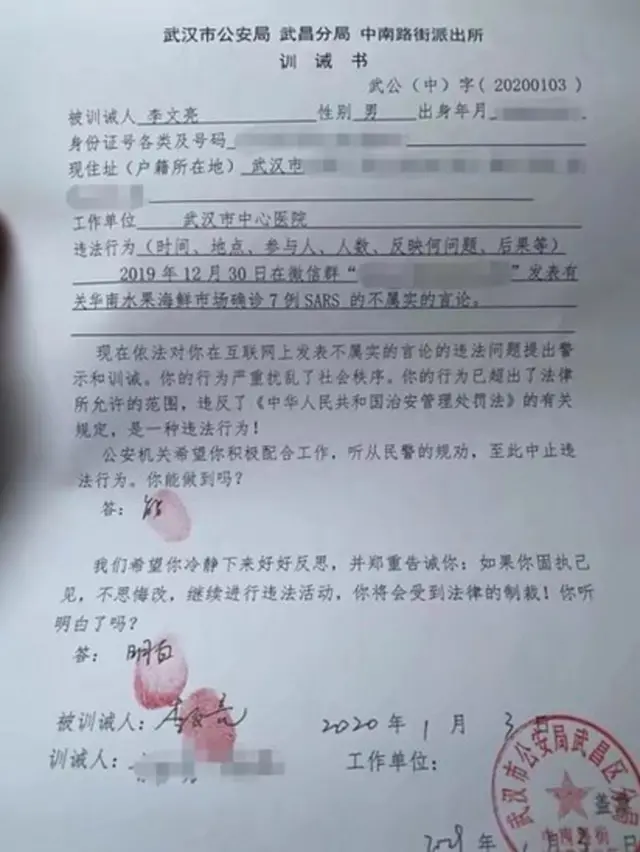 武汉市公安局 武昌分局 中南路街派出所
训 诫 书
武公（中）字（20200103）
被训诫人 李文亮 性别 男 出身年月
身份证号各类及号码
现住址（户籍所在地） 武汉市
工作单位 武汉市中心医院
违法行为（时间、地点、参与人、人数、反映何问题、后果等）
2019年12月30日在微信群“ ”发表有
关华南水果海鲜市场确诊7例SARS的不属实的言论。
现在依法对你在互联网上发表不属实的言论的违法问题提出警
示和训诫。你的行为严重扰乱了社会秩序。你的行为已超出了法律
所允许的范围，违反了《中华人民共和国治安管理处罚法》的有关
规定，是一种违法行为！
公安机关希望你积极配合工作，听从民警的规劝，至此中止违
法行为。你能做到吗？
答：能
我们希望你冷静下来好好反思，并郑重告诫你：如果你固执己
见，不思悔改，继续进行违法活动，你将会受到法律的制裁！你听
明白了吗？
答：明白
被训诫人：李文亮 2020年1月3日
训诫人： 工作单位：
武汉市公安局武昌区分局
中南路街
年 月